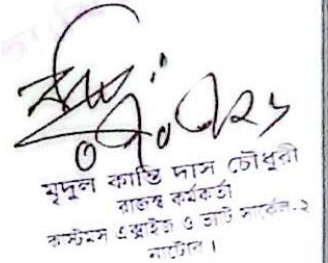 মৃদুল কান্তি দাস চৌধুরী
রাজস্ব কর্মকর্তা
কাস্টমস এক্সাইজ ও ভ্যাট সার্কেল-২
নাটোর।